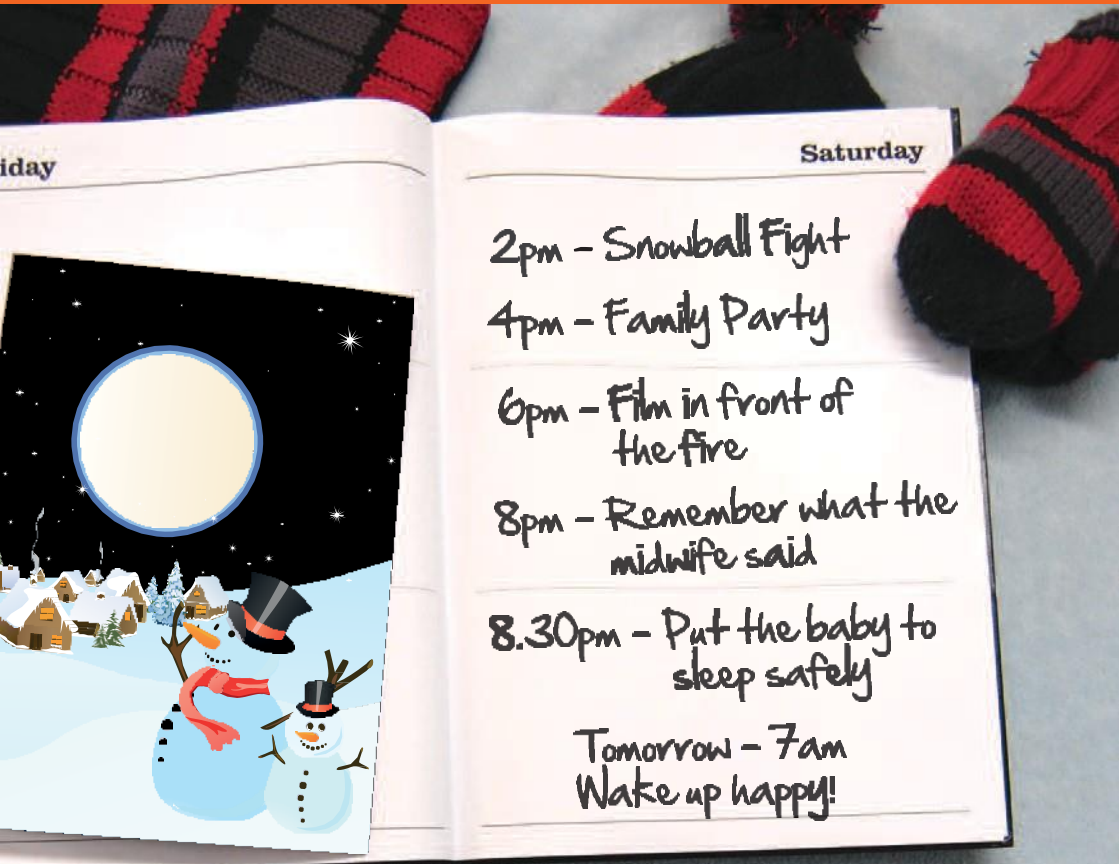 iday
Saturday
2pm – Snowball Fight
4pm – Family Party
6pm – Film in front of
the fire
8pm – Remember what the
midwife said
8.30pm – Put the baby to
sleep safely
Tomorrow – 7am
Wake up happy!